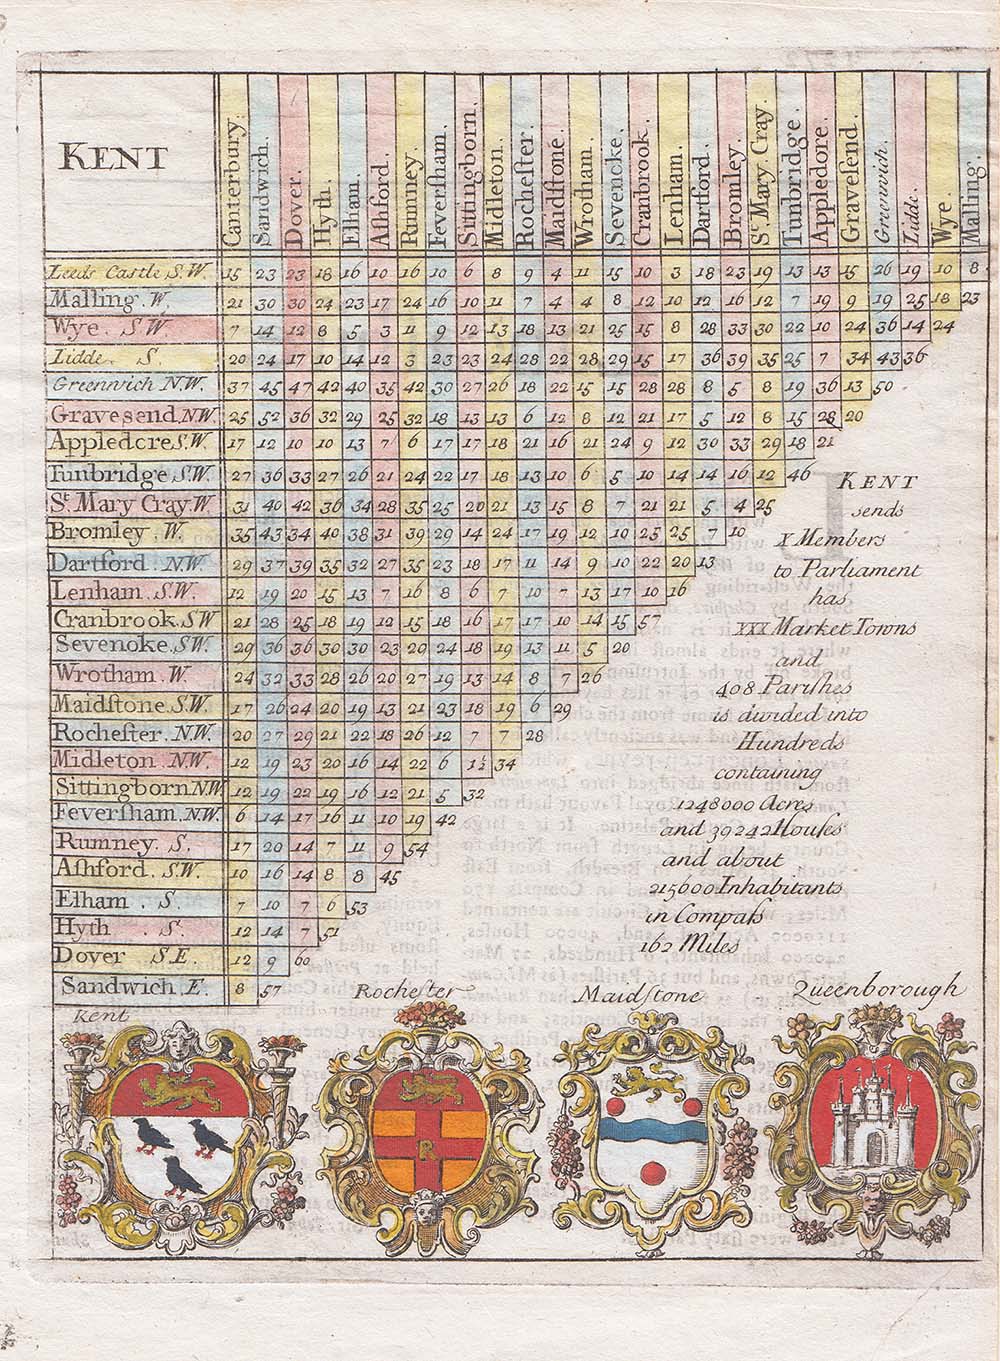 KENT
Canterbury.
Sandwich.
Dover.
Hyth.
Elham.
Aſhford.
Rumney.
Feverſham.
Sittingborn.
Midleton.
Rocheſter.
Maidſtone.
Wrotham.
Sevencke.
Cranbrook.
Lenham.
Dartford.
Bromley.
St. Mary Cray.
Tunbridge.
Appledore.
Graveſend.
Greenwich.
Lidde.
Wye.
Malling.
Leeds Castle S.W. 15 23 23 18 16 10 16 10 6 8 9 4 11 15 10 3 18 23 19 13 13 15 26 19 10 8
Malling. W. 21 30 30 24 23 17 24 16 10 11 7 4 4 8 12 10 12 16 12 7 19 9 19 25 18 23
Wye. S W 7 14 12 8 5 3 11 9 12 13 18 13 21 25 15 8 28 33 30 22 10 24 36 14 24
Lidde. S. 20 24 17 10 14 12 3 23 23 24 28 22 28 29 15 17 36 39 35 25 7 34 43 36
Greenwich N.W. 37 45 47 42 40 35 42 30 27 26 18 22 15 15 28 28 8 5 8 19 36 13 50
Gravesend. NW. 25 52 36 32 29 25 32 18 13 13 6 12 8 12 21 17 5 12 8 15 28 20
Appledcre S.W. 17 12 10 10 13 7 6 17 17 18 21 16 21 24 9 12 30 33 29 18 21
Tunbridge S.W. 27 36 33 27 26 21 24 22 17 18 13 10 6 5 10 14 14 16 12 46
St Mary Cray. W 31 40 42 36 34 28 35 25 20 21 13 15 8 7 21 21 5 4 25
Bromley W. 35 43 34 40 38 31 39 29 14 24 17 19 12 10 25 25 7 10
Dartford N.W. 29 37 39 35 32 27 35 23 18 17 11 14 9 10 22 20 13
Lenham. S.W. 12 19 20 15 13 7 16 8 6 7 10 7 13 17 10 16
Cranbrook. S.W 21 28 25 18 19 12 15 18 16 17 17 10 14 15 57
Sevenoke. S.W. 29 36 36 30 30 23 20 24 18 19 13 11 5 20
Wrotham. W. 24 32 33 28 26 20 27 19 13 14 8 7 26
Maidſtone S.W. 17 26 24 20 19 13 21 23 18 19 6 29
Rocheſter. N.W. 20 27 29 21 22 18 26 12 7 7 28
Midleton N.W. 12 19 23 20 16 14 22 6 1½ 34
Sittingborn N.W. 12 19 22 19 16 12 21 5 32
Feverſham. N.W. 6 14 17 16 11 10 19 42
Rumney. S. 17 20 14 7 11 9 54
Aſhford. S.W. 10 16 14 8 8 45
Elham. S. 7 10 7 6 53
Hyth. S. 12 14 7 51
Dover S.E. 12 9 60
Sandwich. E. 8 57
KENT
sends
X Members
to Parliament
has
XXX Market Towns
and
408 Pariſhes
is divided into
Hundreds
containing
1248000 Acres
and 39242 Houſes
and about
215600 Inhabitants
in Compaſs
162 Miles
Kent
Rocheſter
Maidſtone
Queenborough
R